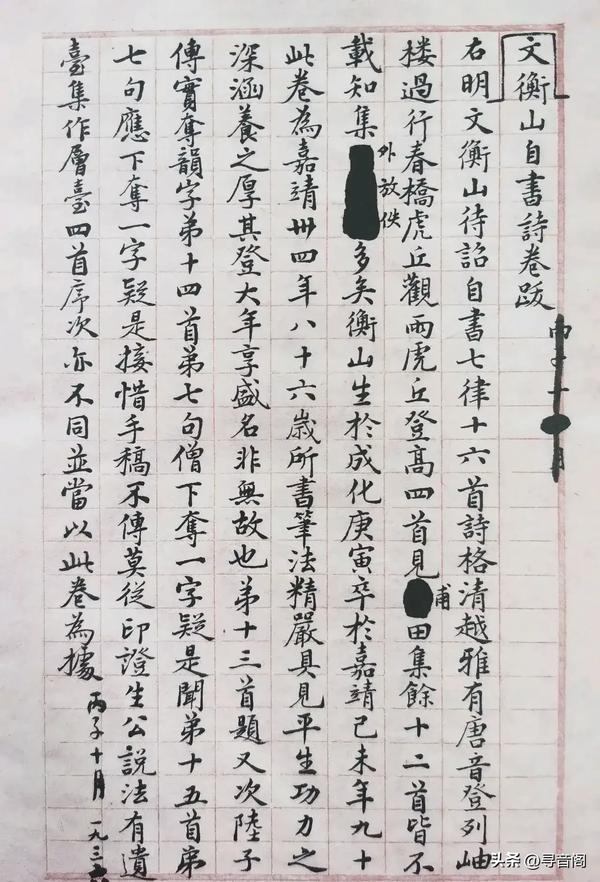 文衡山自書詩卷跋
丙子十月
右明文衡山待詔自書七律十六首詩格清越雅有唐音登列岫
楼過行春橋虎丘觀雨虎丘登高四首見甫田集餘十二首皆不
載知集外放佚多矣衡山生於成化庚寅卒於嘉靖己未年九十
此卷為嘉靖卅四年八十六歲所書筆法精嚴具見平生功力之
深涵養之厚其登大年享盛名非無故也弟十三首題又次陸子
傳實奪韻字弟十四首弟七句僧下奪一字疑是聞弟十五首弟
七句應下奪一字疑是接惜手稿不傳莫從印證生公說法有遺
臺集作層臺四首序次亦不同並當以此卷為據
丙子十月 一九三六
头条 @寻音阁